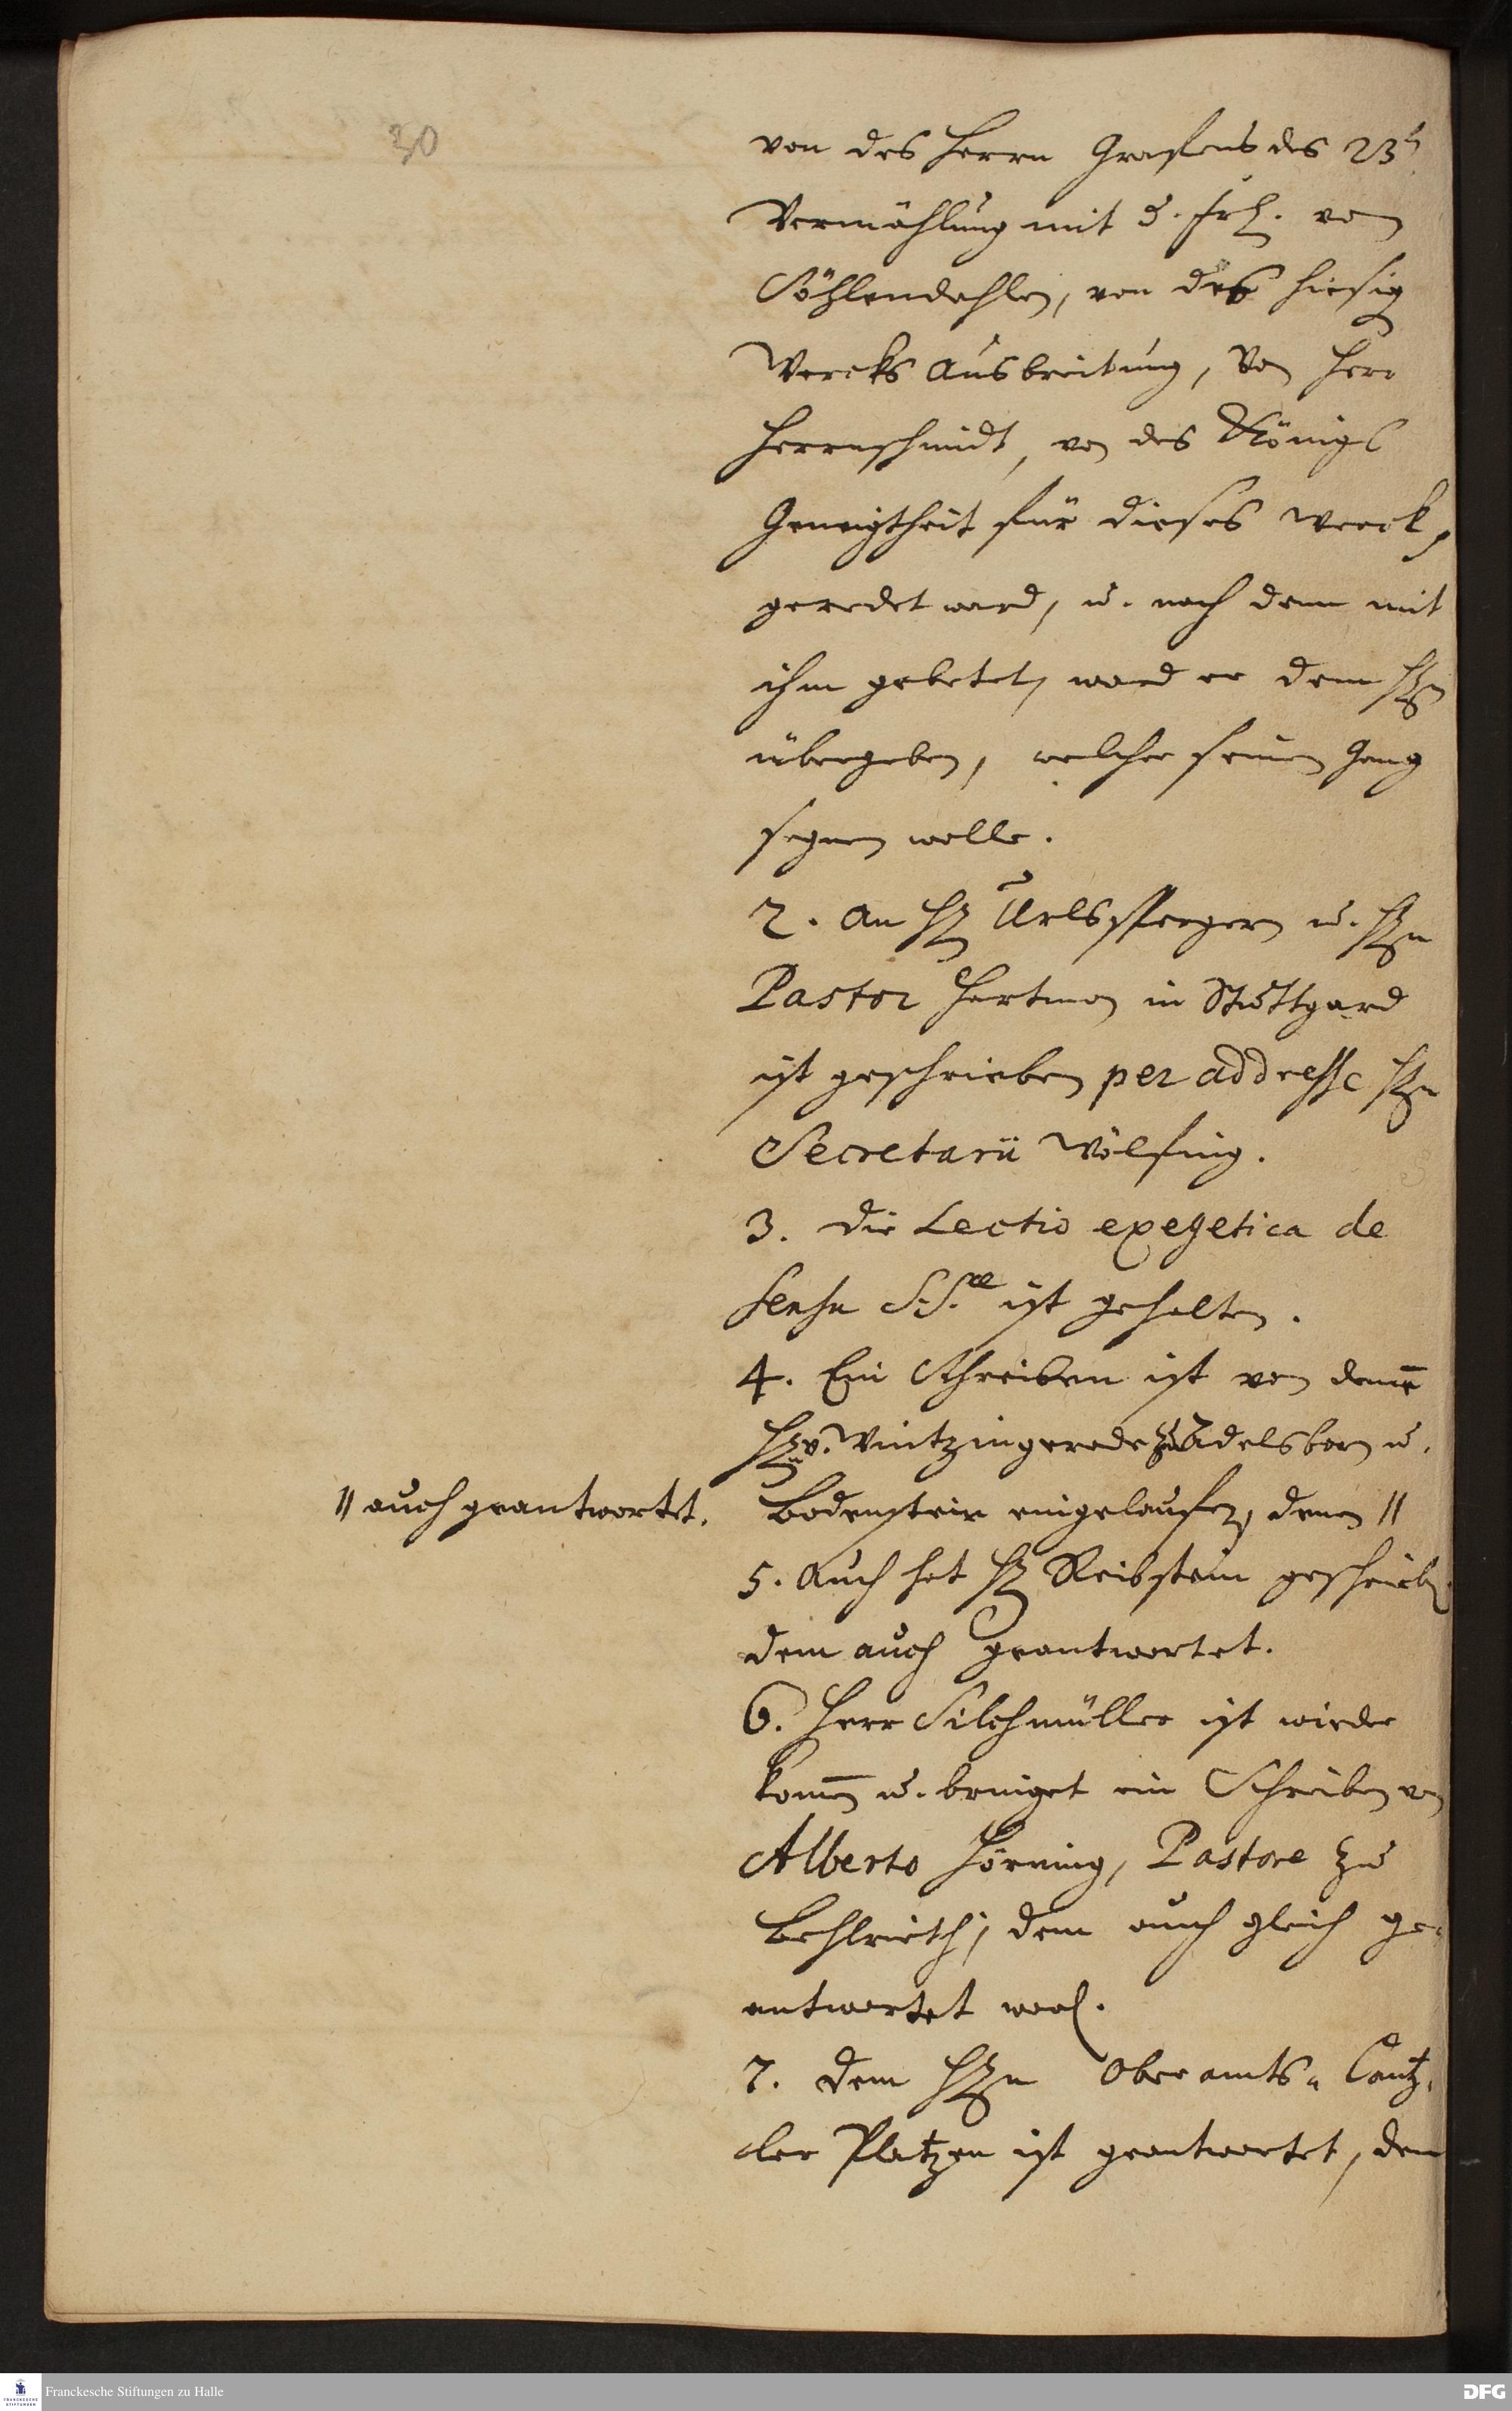 30
von des Herrn Grafens des 23t
Vermählung mit d. Frl. von
Söhlendahlen, von des hiesig
Wercks Ausbreitung, von Herr
Herrnschmidt, von des Königs
Geneigtheit für dieses Werck,
geredet ward, u. nach dem mit
ihm gebetet, ward er dem HEn
übergeben, welcher seinen Gang
segnen wolle.
2. An H Urlspergern u. HEn
Pastor Hartman in Stuttgard
ist geschrieben per addresse HEn
Secretarii Wölfing.
3. Die Lectio exegetica de
sensu S. S.ae ist gehalten.
4. Ein Schreiben ist von denen
HEn v. Wintzingerode zu Adelsborn u.
Bodenstein eingelaufen, denen //
// auch geantwortet.
5. Auch hat H Reibstein geschrieb
dem auch geantwortet.
6. Herr Silchmüller ist wieder
kom̄en u. bringet ein Schreiben von
Alberto Hörning, Pastore zu
Behlrieth, dem auch gleich ge-
antwortet word.
7. Dem HEn Oberamts-Cantz-
ler Platzen ist geantwortet, dem
Franckesche Stiftungen zu Halle
FRANCKESCHE STIFTUNGEN
DFG